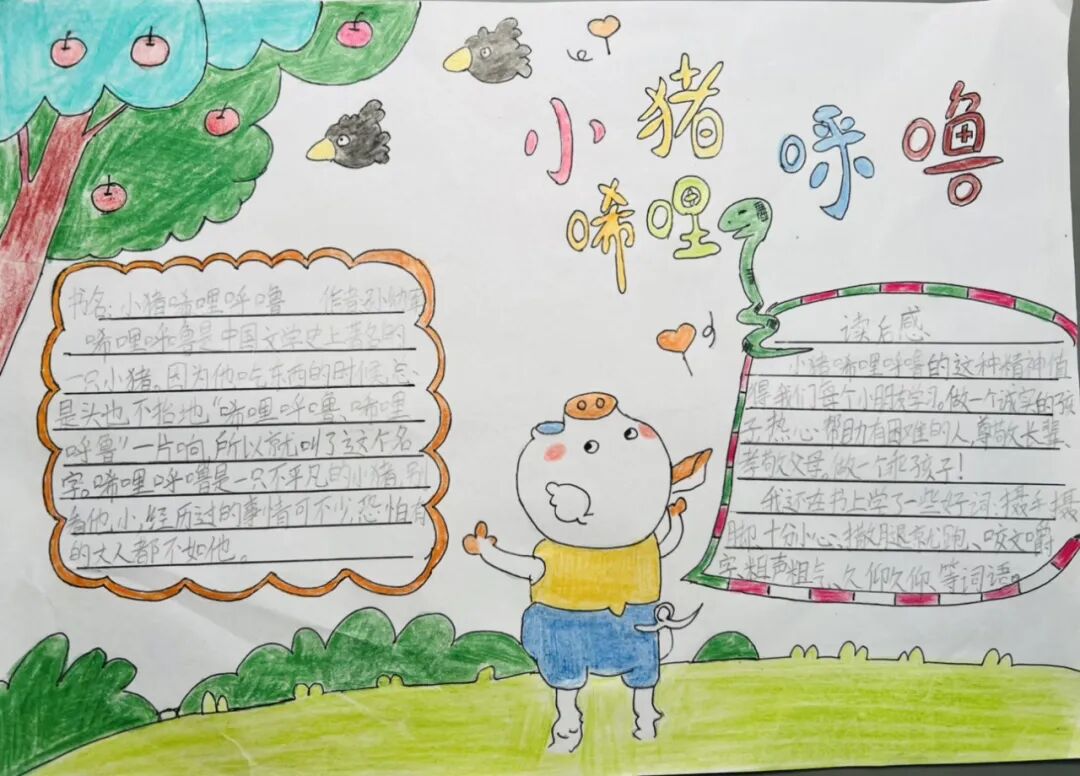 小猪
唏哩
呼噜
书名:小猪唏哩呼噜 作者:孙幼军
唏哩呼噜是中国文学史上著名的
一只小猪。因为他吃东西的时候,总
是头也不抬地,“唏哩呼噜、唏哩
呼噜”一片响,所以就叫了这个名
字。唏哩呼噜是一只不平凡的小猪,别
看他,小,经历过的事情可不少,恐怕有
的大人都不如他。
读后感
小猪唏哩呼噜的这种精神值
得我们每个小朋友学习。做一个诚实的孩
子,热心、帮助有困难的人,尊敬长辈、
孝敬父母,做一个乖孩子!
我还在书上学了一些好词:摄手摄
脚、十分小心、撒腿就跑、咬文嚼
字、粗声粗气、久仰久仰、等词语。